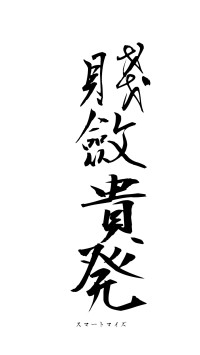 賤斂貴発
スマートマイズ